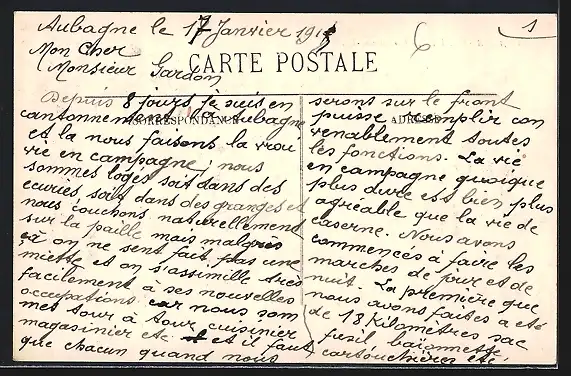 Aubagne le 17 Janvier 191
6
1
Mon Cher
Monsieur Gardon
CARTE POSTALE
CORRESPONDANCE
ADRESSE
Depuis 8 jours je suis en
cantonnement à Aubagne
et la nous faisons la vrai
vie en campagne, nous
sommes logés soit dans des
écuries soit dans des granges et
nous couchons naturellement
sur la paille mais malgrès
çà on ne sent fait pas une
miette et on s'assimille très
facilement à ses nouvelles
occupations car nous som
mes tour à tour cuisinier
magasinier etc et il faut
que chacun quand nous
serons sur le front
puisse remplir con
venablement toutes
les fonctions. La vie
en campagne quoique
plus dure est bien plus
agréable que la vie de
caserne. Nous avons
commencés à faire les
marches de jour et de
nuit. La première que
nous avons faites a été
de 18 Kilomètres sac
fusil baïonnette
cartouchières etc.